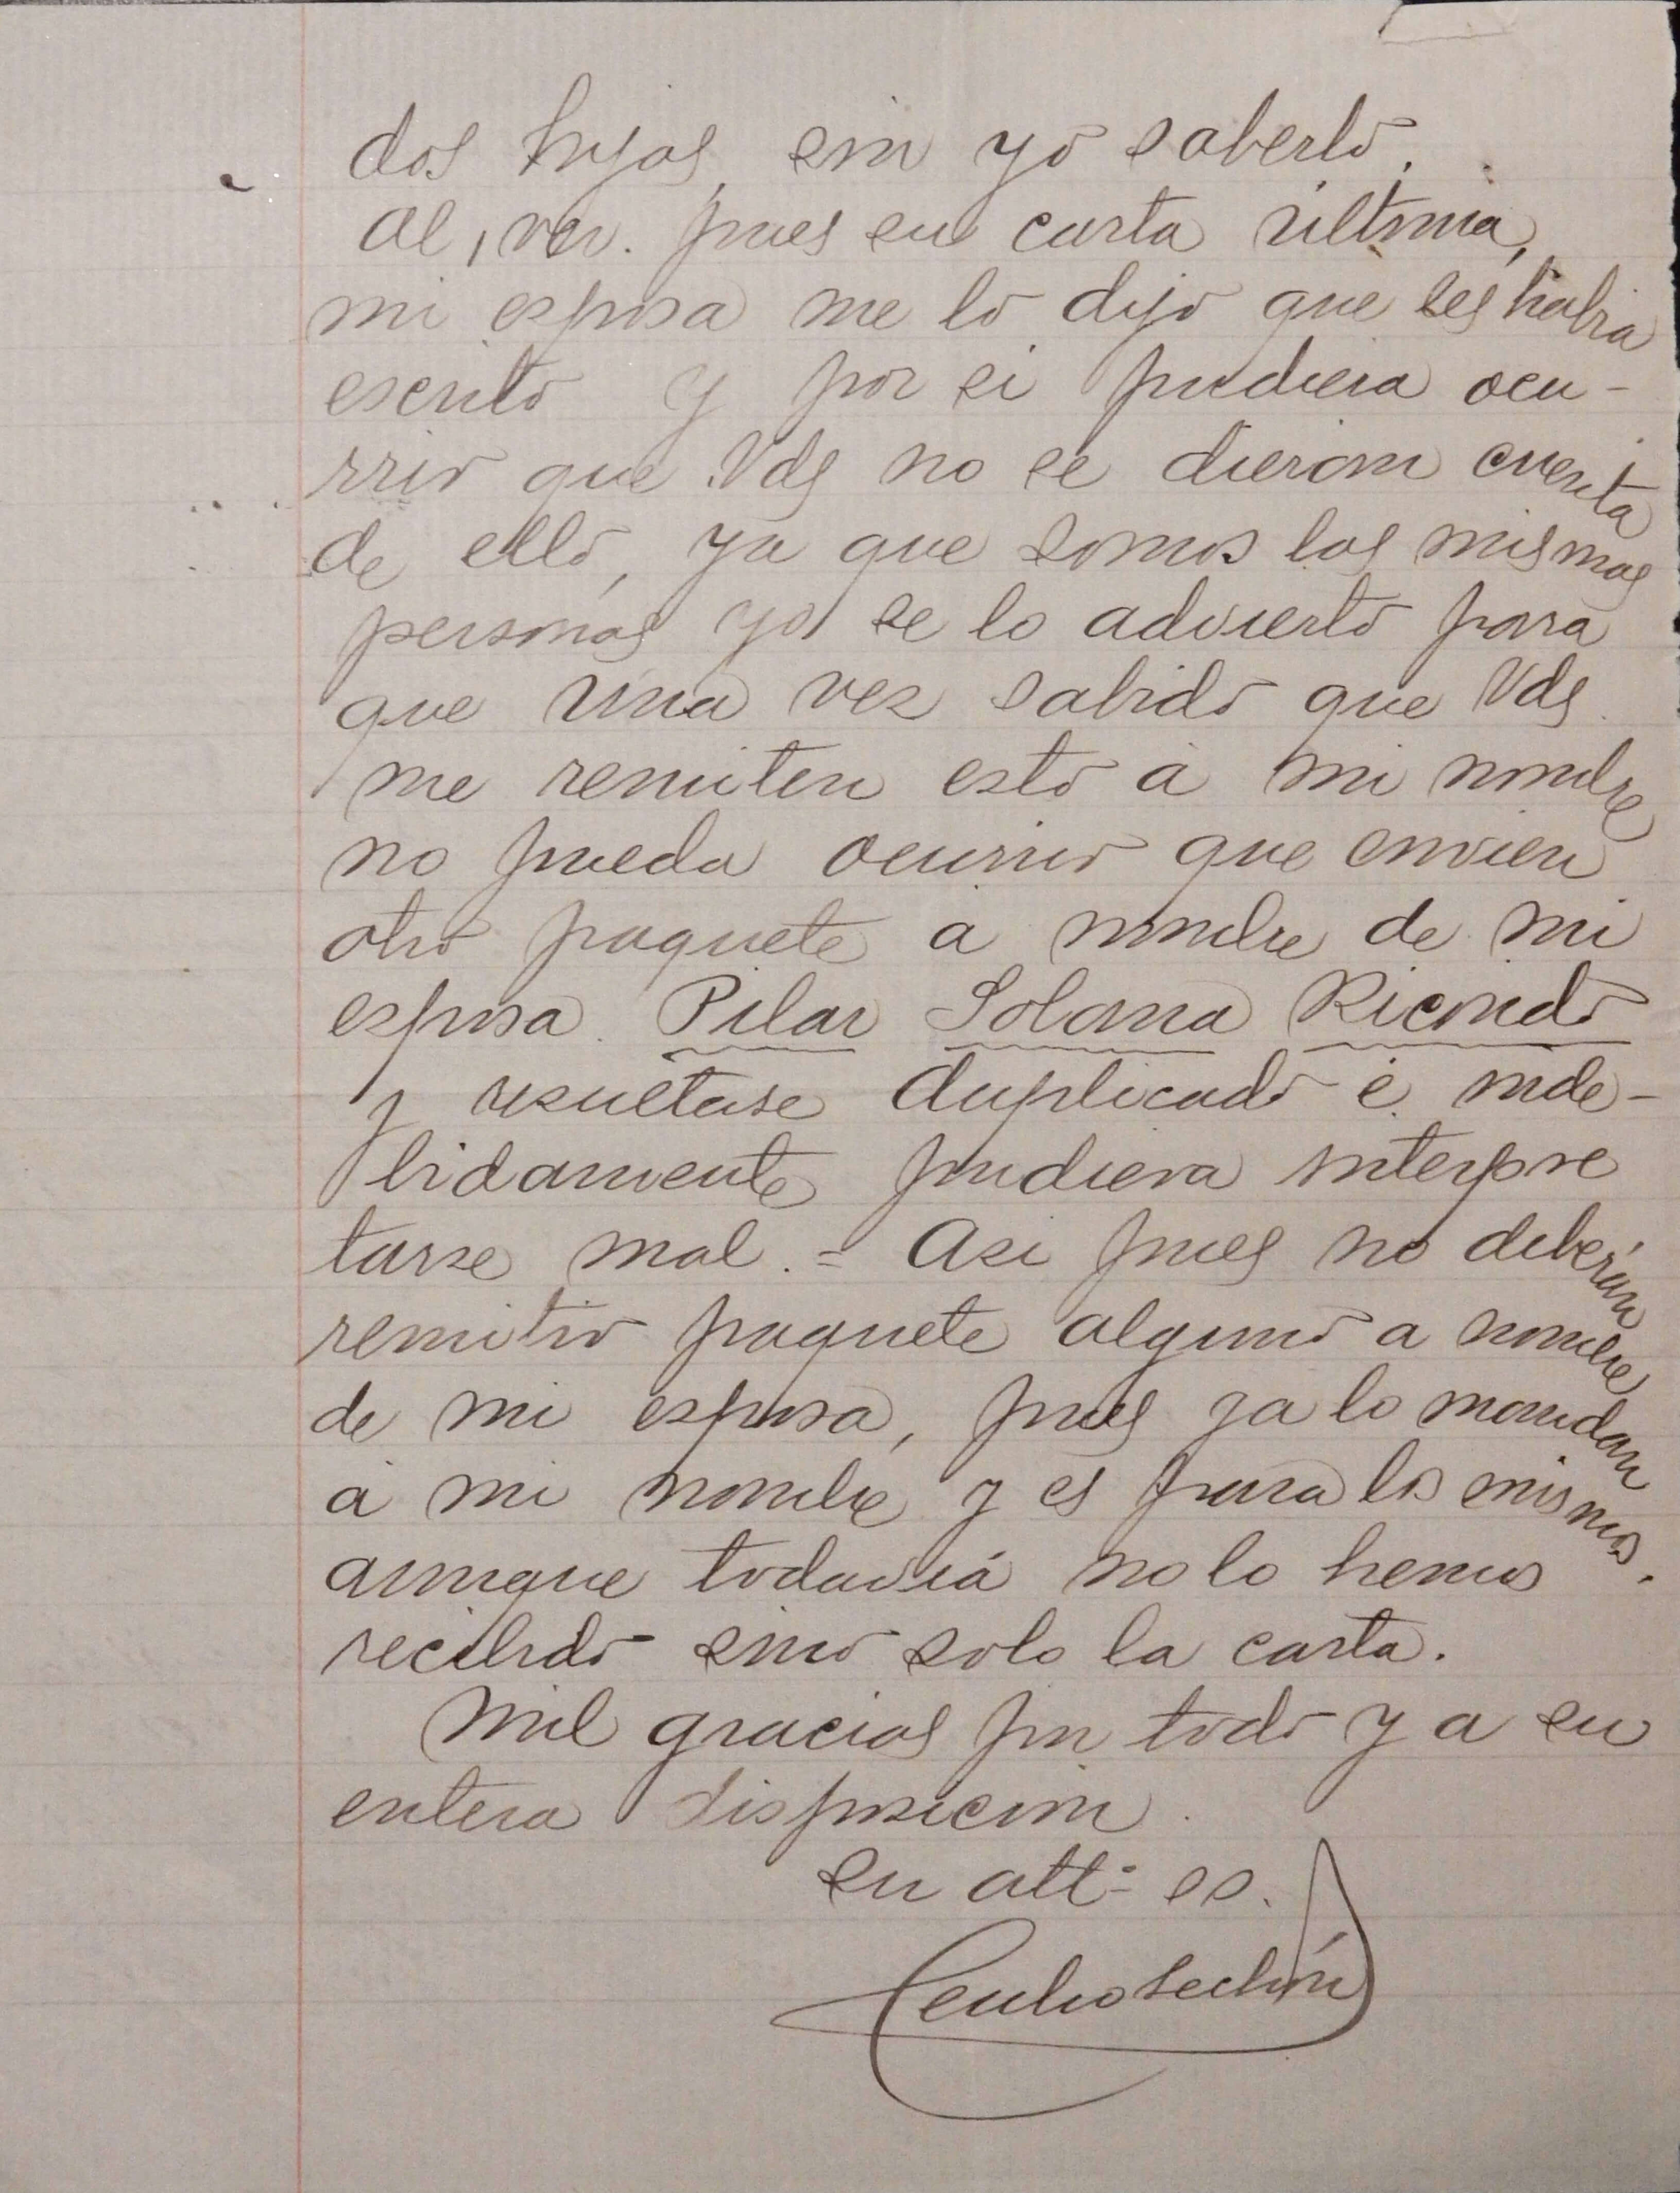 dos hijos, sin yo saberlo.
Al, ver. pues su carta última,
mi esposa me lo dijo que les habia
escrito y por si pudiera ocu-
rrir que Vds no se dieran cuenta
de ello, ya que somos las mismas
personas yo se lo advierto para
que una vez sabido que Vds.
me remiten esto á mi nombre
no pueda ocurrir que envien
otro paquete á nombre de mi
esposa Pilar Solana Ricondo
y resultase duplicado é inde-
bidamente pudiera interpre
tarse mal. = Asi pues no deberán
remitir paquete alguno a nombre
de mi esposa, pues ya lo mandan
á mi nombre y es para los mismos.
aunque todavia no lo hemos
recibido sino solo la carta.
Mil gracias por todo y a su
entera disposicion.
su att.º ss.